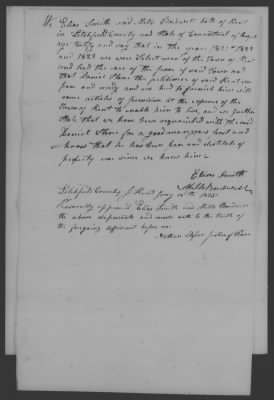 We Elias Smith and Milo Bordwell both of Kent
in Litchfield County and State of Connecticut of law
age testify and say that in the years 1821 - 1822
and 1823 we were Select men of the Town of Kent
and had the care of the poor of said Town and
that Daniel Stone the petitioner of said Kent was
poor and needy and we had to furnish him with
some articles of provision at the expense of the
Town of Kent to enable him to live, and we further
state that we have been acquainted with the said
Daniel Stone for a good many years past and
know that he has been poor and destitute of
property ever since we knew him -
Elias Smith
Litchfield County Kent Jany 1825
Personally appeared Elias Smith and Milo
the above deponents and made oath to the truth of
the foregoing affidavit before me
Nathan Justice of Peace